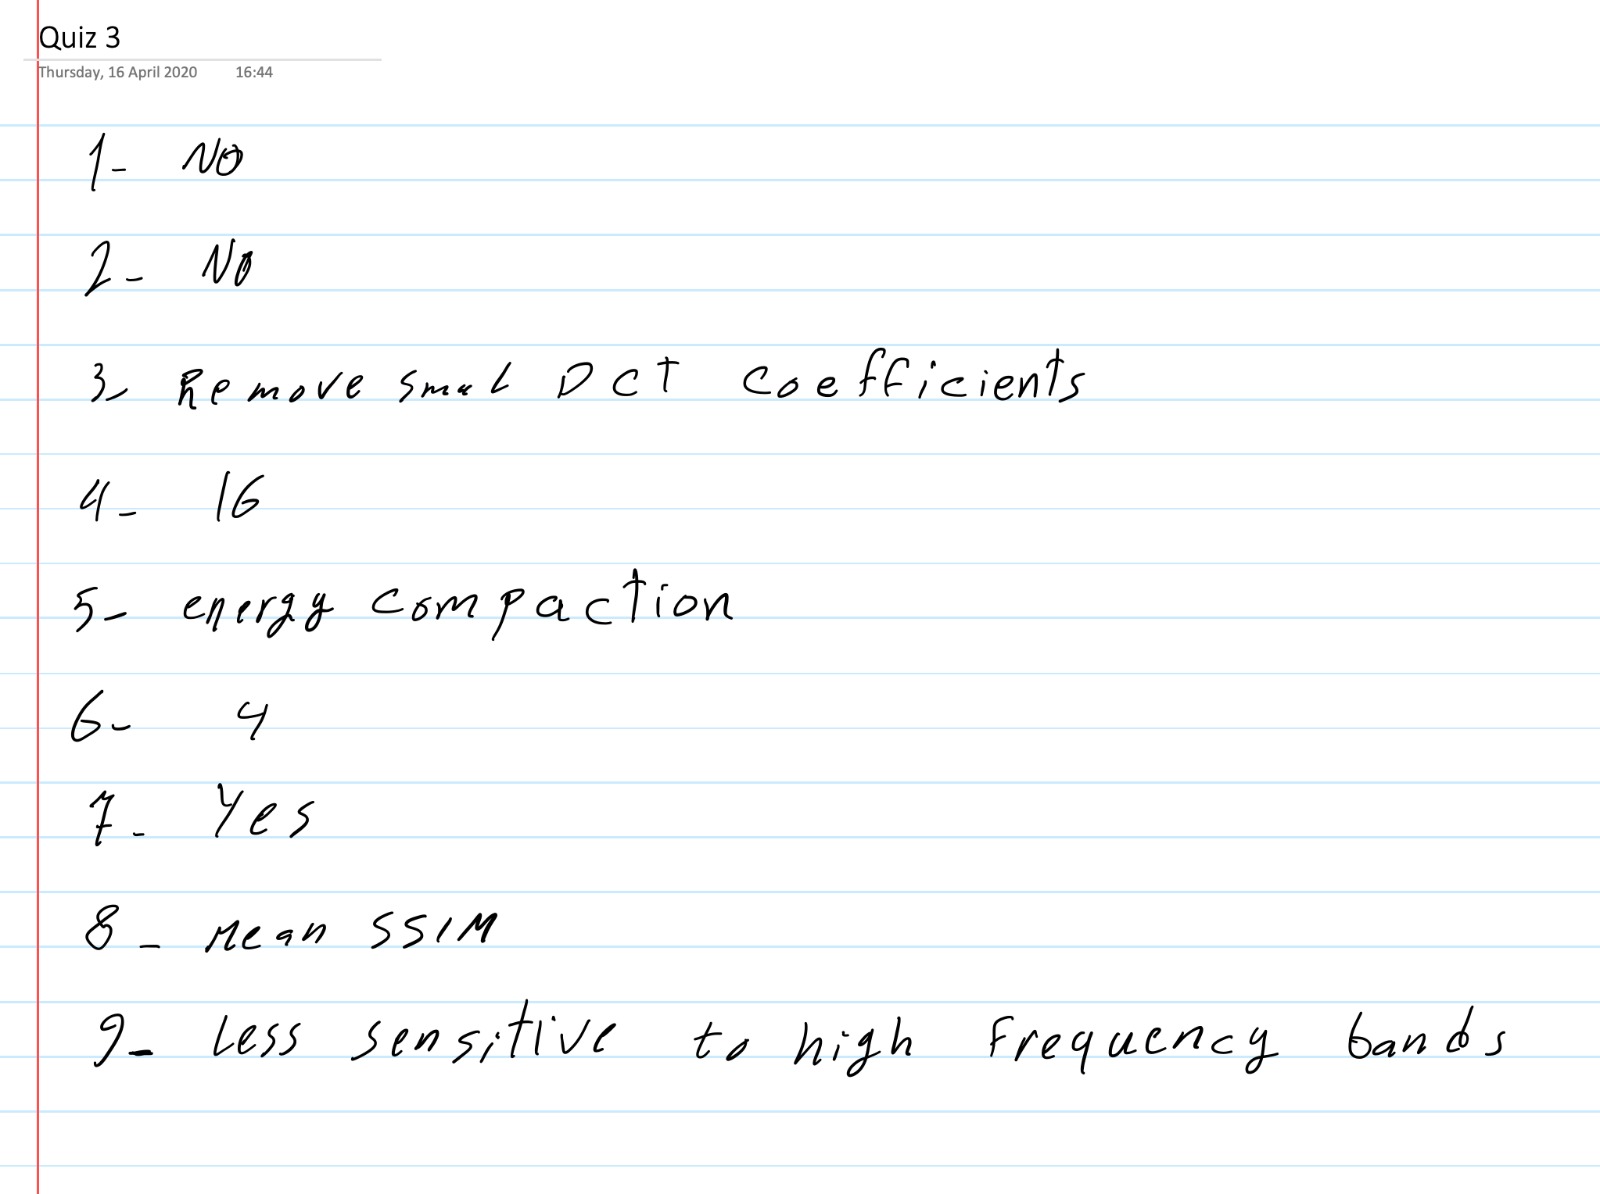 Quiz 3
Thursday, 16 April 2020 16:44
1- NO
2- NO
3- Remove small DCT coefficients
4- 16
5- energy compaction
6- 4
7- Yes
8- Mean SSIM
9- Less sensitive to high frequency bands